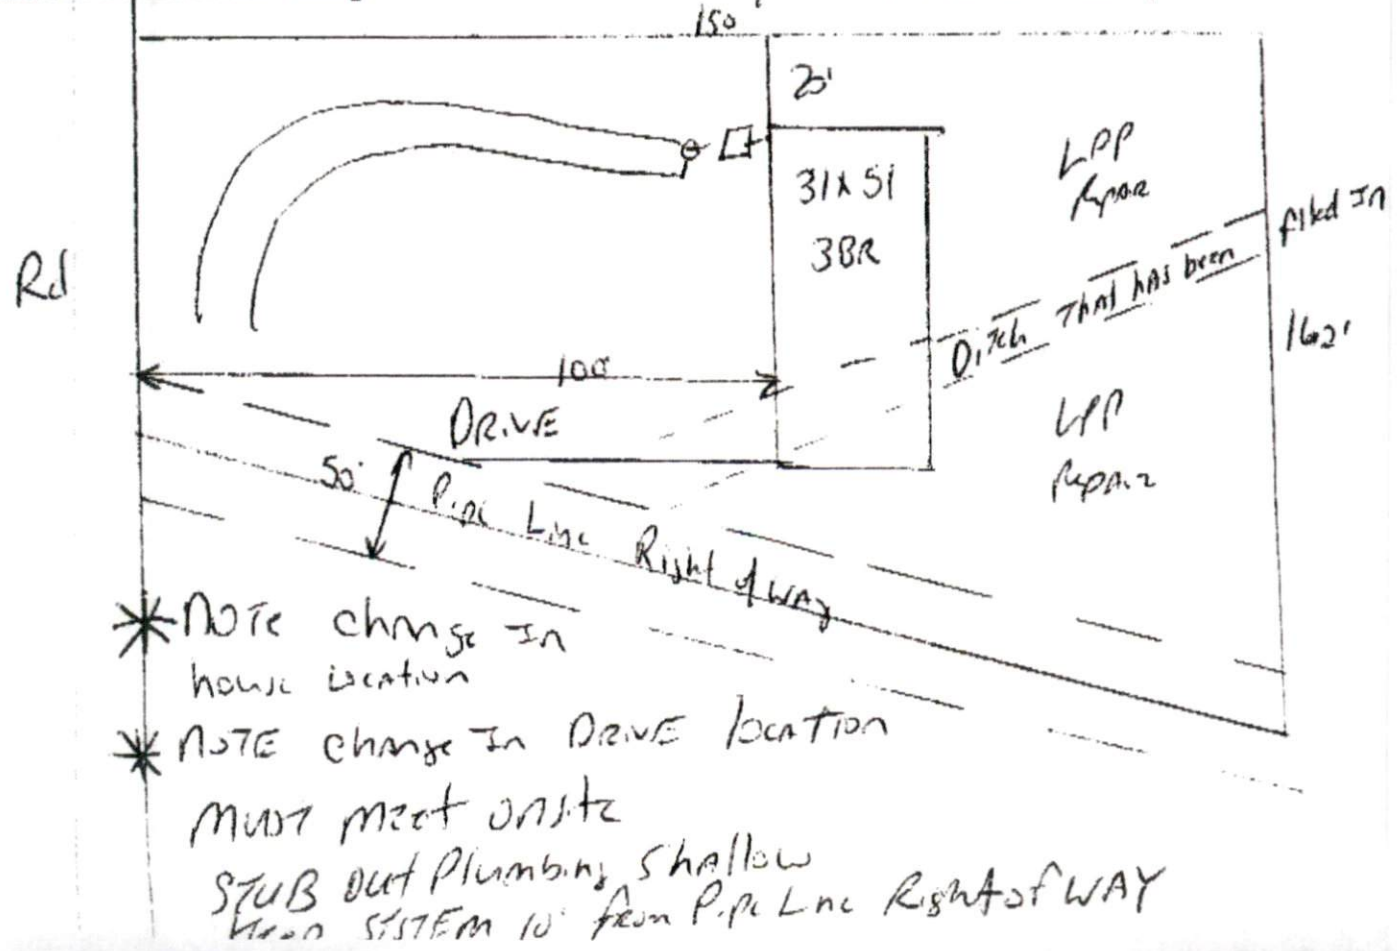 150'
20'
LPP
Repair
31x51
3BR
Rd
Ditch That has been filled In
162'
100'
DRIVE
LPP
Repair
50'
Pipe Line Right of WAY
NOTE change In
house location
NOTE change In DRIVE location
MUST meet onsite
STUB Out Plumbing Shallow
Keep SYSTEM 10' from Pipe Line Right of WAY